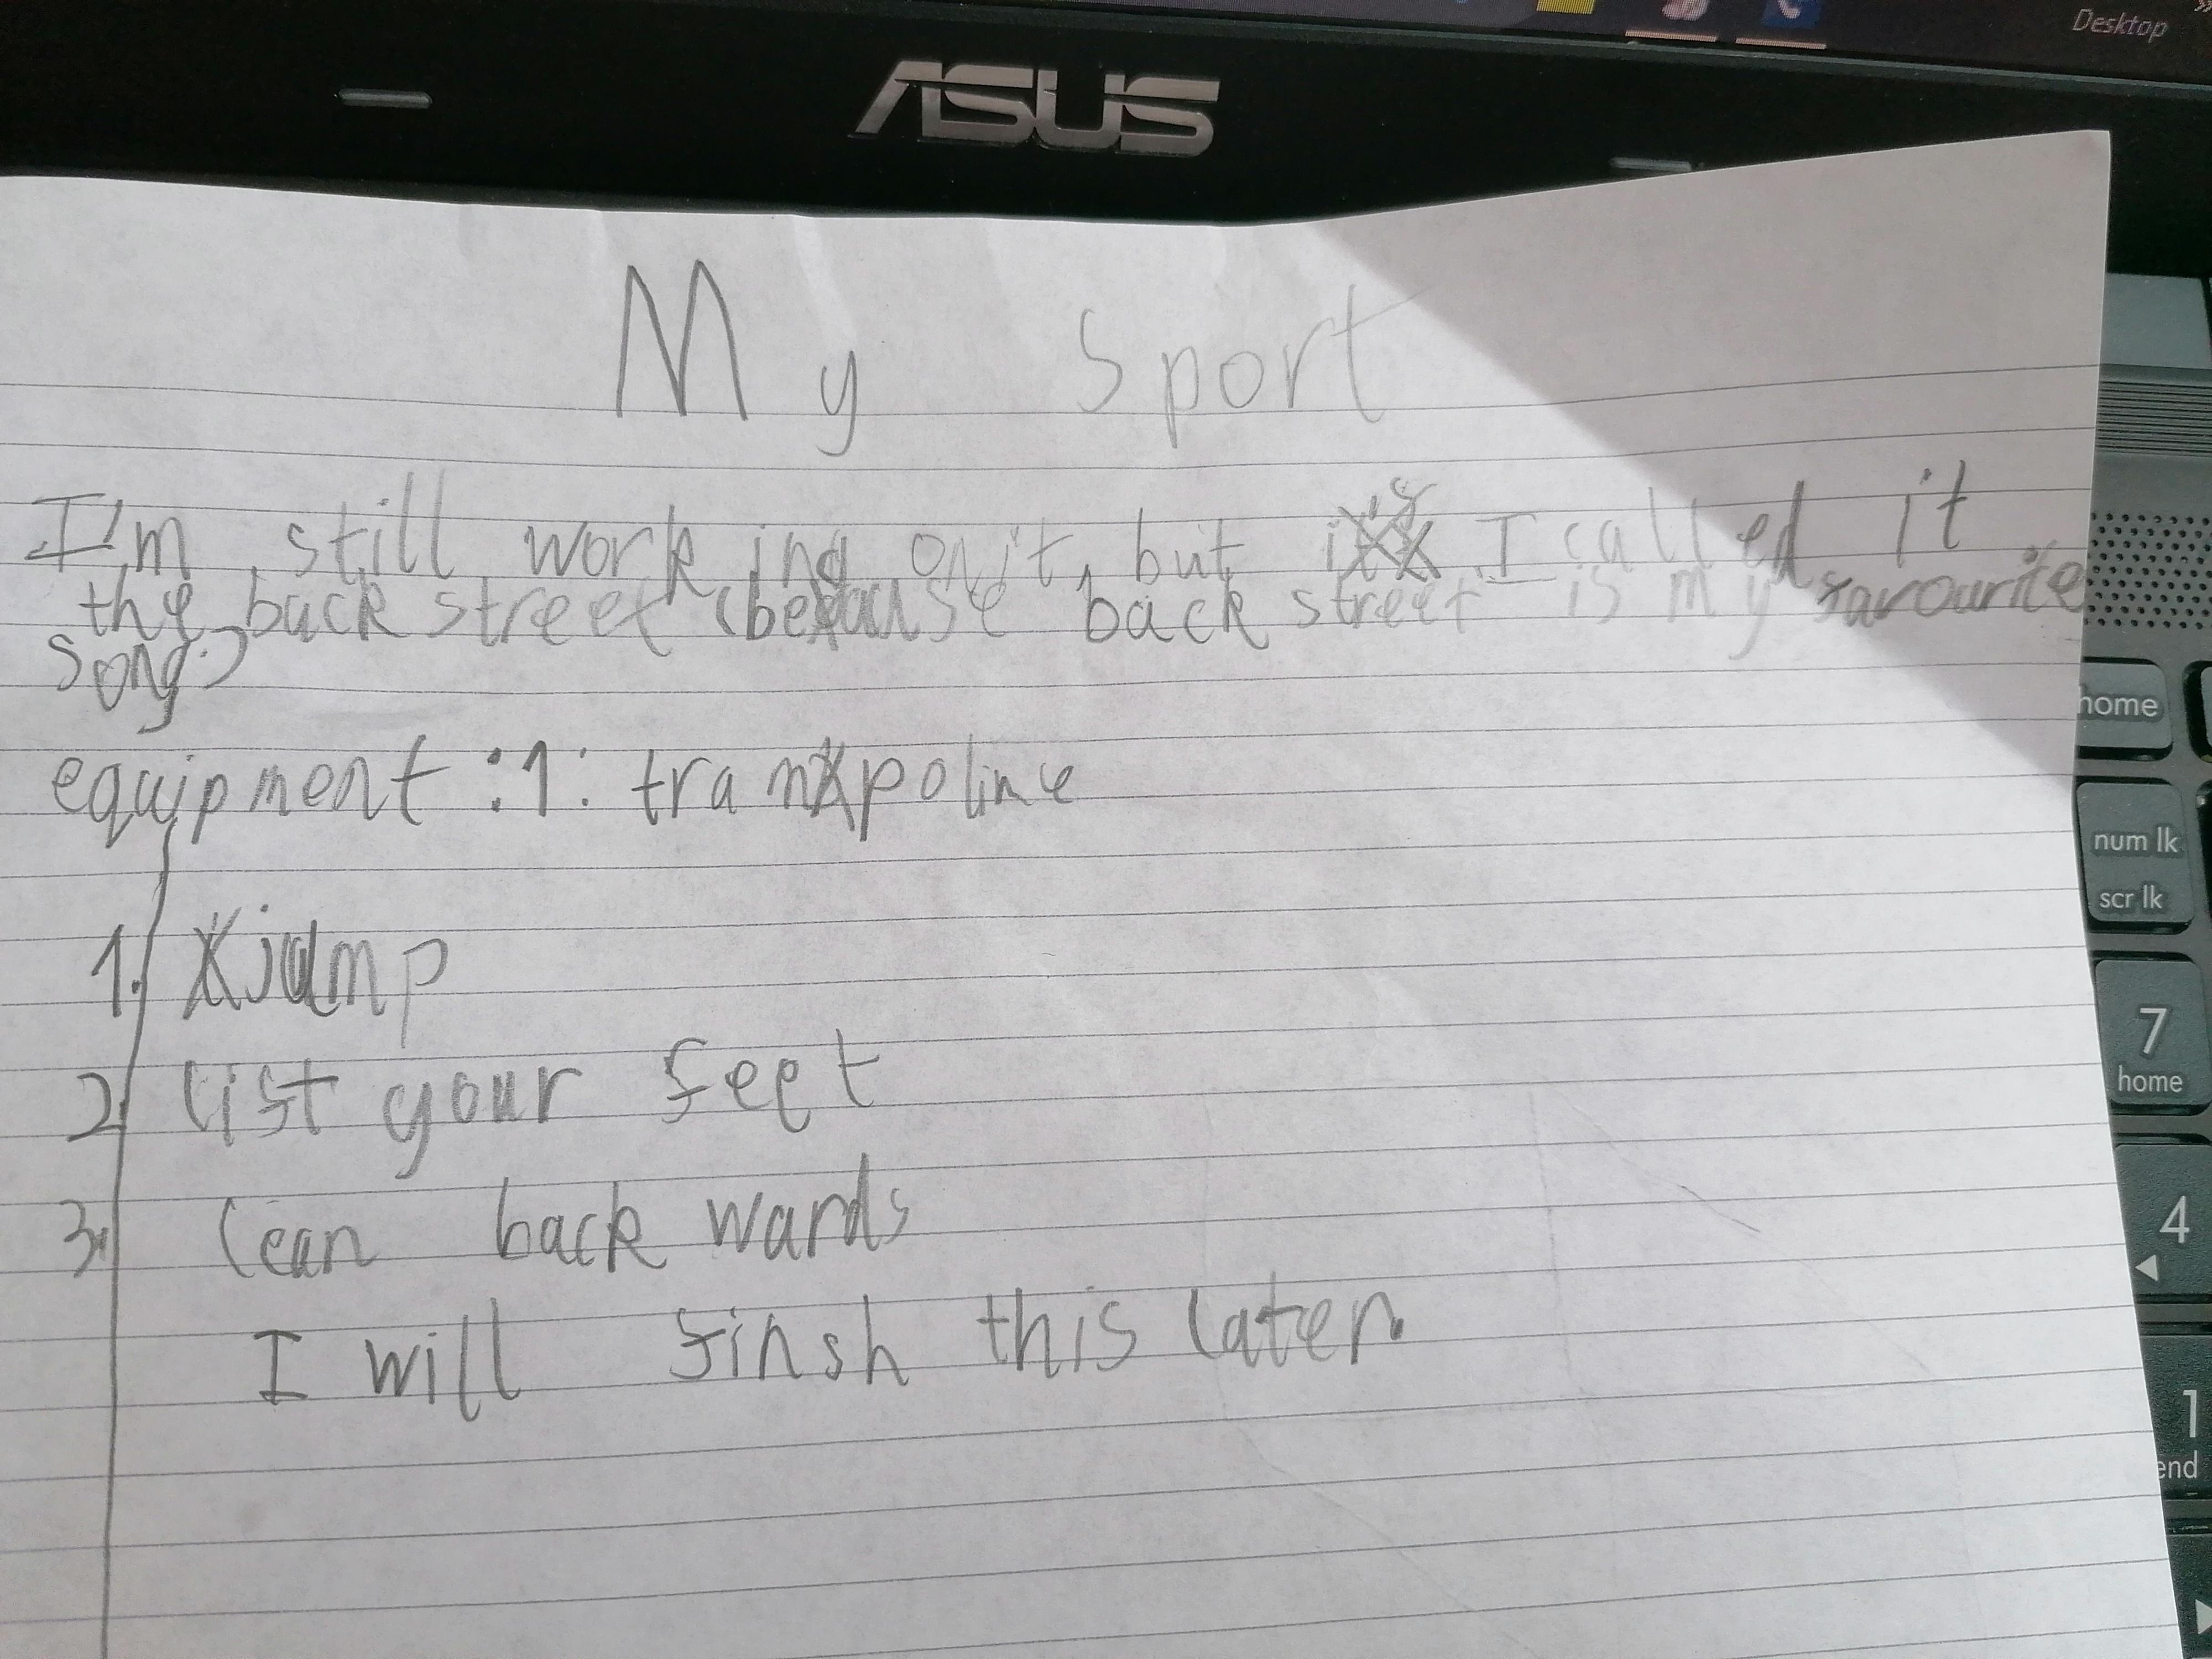 Desktop
ASUS
My Sport
I'm still working on it, but I called it
the back street (because back street is my favourite
song.)
equipment :1: trampoline
1. jump
2. lift your feet
3. lean back wards
I will finsh this later.
home
num lk
scr lk
7
home
4
1
end